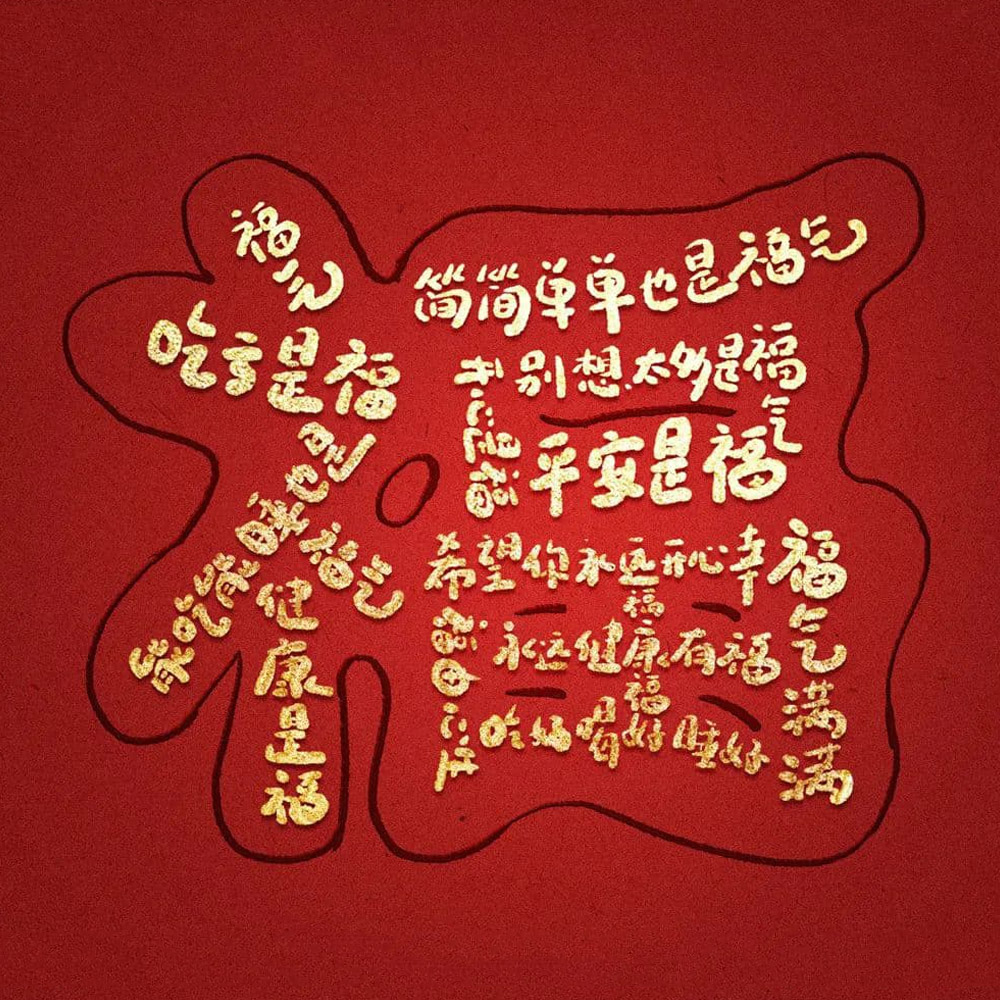 福气
吃亏是福
能吃能睡也是福气
健康是福
简简单单也是福气
别想太多是福气
开心是福
平安是福
希望你永远开心幸福
福气满满
永远健康有福
福
福
吃好喝好睡好